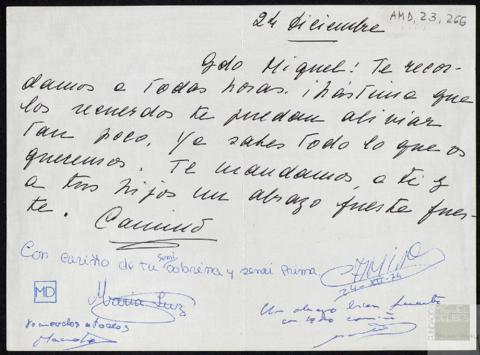 24 diciembre
AMD, 23, 266
Qdo Miguel: Te recor-
damos a todas horas. ¡Lástima que
los recuerdos te puedan aliviar
tan poco. Ya sabes todo lo que os
queremos. Te mandamos a ti y
a tus hijos un abrazo fuerte fuer-
te. Camino
Con cariño de tu semi sobrina y semi prima
CAMINO
24-XII-74
MD
María Luz
Un abrazo bien fuerte
con todo cariño
recuerdos a todos